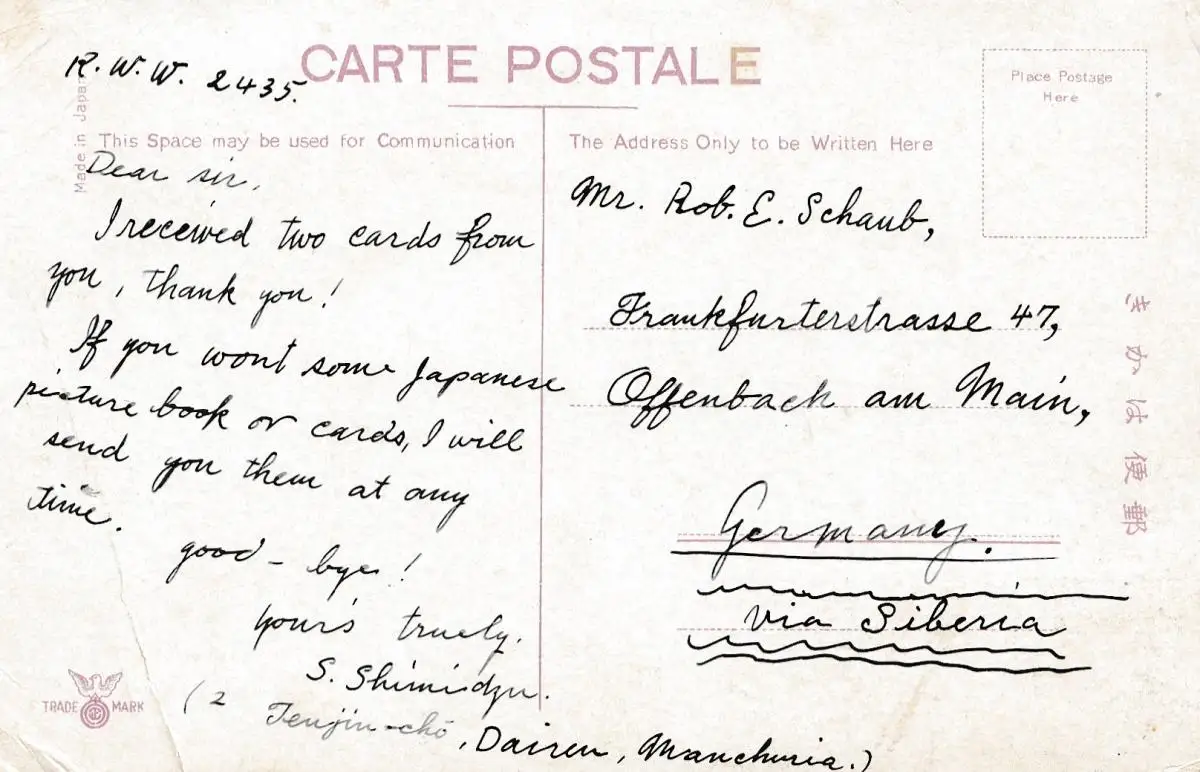 CARTE POSTALE
R. W. W. 2435.
Made in Japan
This Space may be used for Communication
Dear sir,
I received two cards from
you, thank you!
If you wont some Japanese
picture book or cards, I will
send you them at any
time.
good-bye!
your's truely.
S. Shimidzu.
(2 Tenjin-chō, Dairen, Manchuria.)
TRADE MARK
The Address Only to be Written Here
Place Postage
Here
Mr. Rob. E. Schaub,
Frankfurterstrasse 47,
Offenbach am Main,
Germany.
via Siberia
郵便はかき